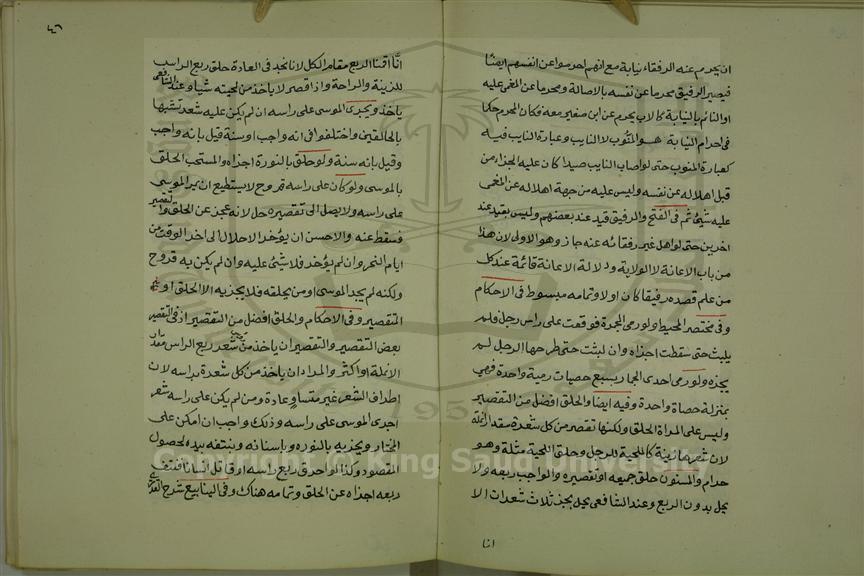 ان يحرم عنه الرفقاء نيابة مع انهم احرموا عن انفسهم ايضا
فيصير الرفيق محرما عن نفسه بالاصالة ومحرما عن المغمى عليه
او النائم بالنيابة كالاب يحرم عن ابن صغير معه فكان المحرم حكما
فى احرام النيابة هو المنوب لا النايب وعبارة النايب فيه
كعبارة المنوب حتى لو اصاب النايب صيدا كان عليه الجزاء من
قبل اهلاله عن نفسه وليس عليه من جهة اهلاله عن المغمى
عليه شئ ثم فى الفتح والرفيق قيد عند بعضهم وليس بقيد عند
اخرين حتى لو اهل غير رفقائه عنه جاز وهو الاولى لان هذا
من باب الاعانة لا الولاية ودلالة الاعانة قائمة عند كل
من علم قصده رفيقا كان اولا وتمامه مبسوط فى الاحكام
وفى مختصر المحيط ولو رمى الجمرة فوقعت على راس رجل فلم
يلبث حتى سقطت اجزاه وان لبثت حتى طرحها الرجل لم
يجزه ولو رمى احدى الجمار بسبع حصيات رمية واحدة فهي
بمنزلة حصاة واحدة وفيه ايضا والحلق افضل من التقصير
وليس على المراة الحلق ولكنها تقصر من كل شعرة مقدار انملة
لان شعرها زينة كاللحية للرجل وحلق اللحية مثلة وهو
حرام والمسنون حلق جميعه او تقصيره والواجب ربعه ولا
يحل بدون الربع وعند الشافعى يحل بجذ ثلاث شعرات الا
انا
٤٦
انا اقمنا الربع مقام الكل لانا نجد فى العادة حلق ربع الراس
للزينة والراحة واذا قصر لا ياخذ من لحيته شيا وعند الشافعى
ياخذ ويجرى الموسى على راسه ان لم يكن عليه شعر تشبها
بالحالقين واختلفوا فى انه واجب او سنة قيل بانه واجب
وقيل بانه سنة ولو حلق بالنورة اجزاه والمستحب الحلق
بالموسى ولو كان على راسه قروح لا يستطيع ان يمر الموسى
على راسه ولا يصل الى تقصيره حل لانه عجز عن الحلق والتقصير
فسقط عنه والاحسن ان يؤخر الاحلال الى اخر الوقت من
ايام النحر وان لم يؤخر فلا شئ عليه وان لم يكن به قروح
ولكنه لم يجد الموسى او من يحلقه فلا يجزيه الا الحلق او
التقصير وفى الاحكام والحلق افضل من التقصير اذ فى التقصير
بعض التقصير والتقصير ان ياخذ من شعر ربع الراس مقدار
الانملة او اكثر والمراد ان ياخذ من كل شعرة براسه لان
اطراف الشعر غير متساو عادة ومن لم يكن على راسه شعر
اجرى الموسى على راسه وذلك واجب ان امكن على
المختار ويجزيه بالنوره وباسنانه وبنتفه بيده لحصول
المقصود وكذا لو احرق ربع راسه او قاتل انسانا فنتف
ربعه اجزاه عن الحلق وتمامه هناك وفى الينابيع شرح